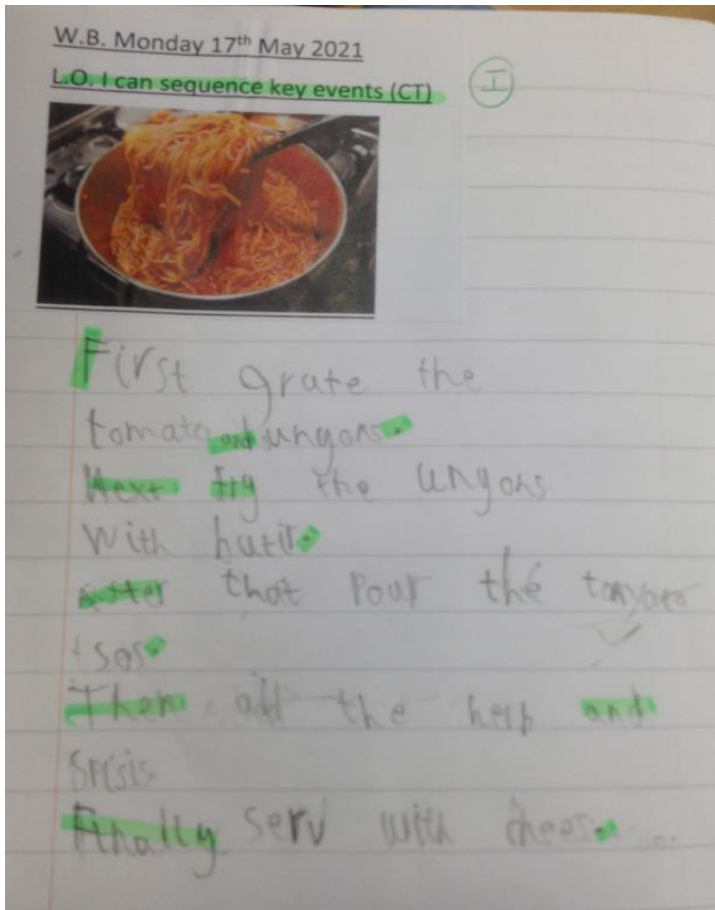 W.B. Monday 17th May 2021
L.O. I can sequence key events (CT)
I
First grate the
tomato and ungons.
Next fry the ungons
with butit.
After that Pour the tomato
sos.
Then add the herb and
Spisis
Finally serv with chees.